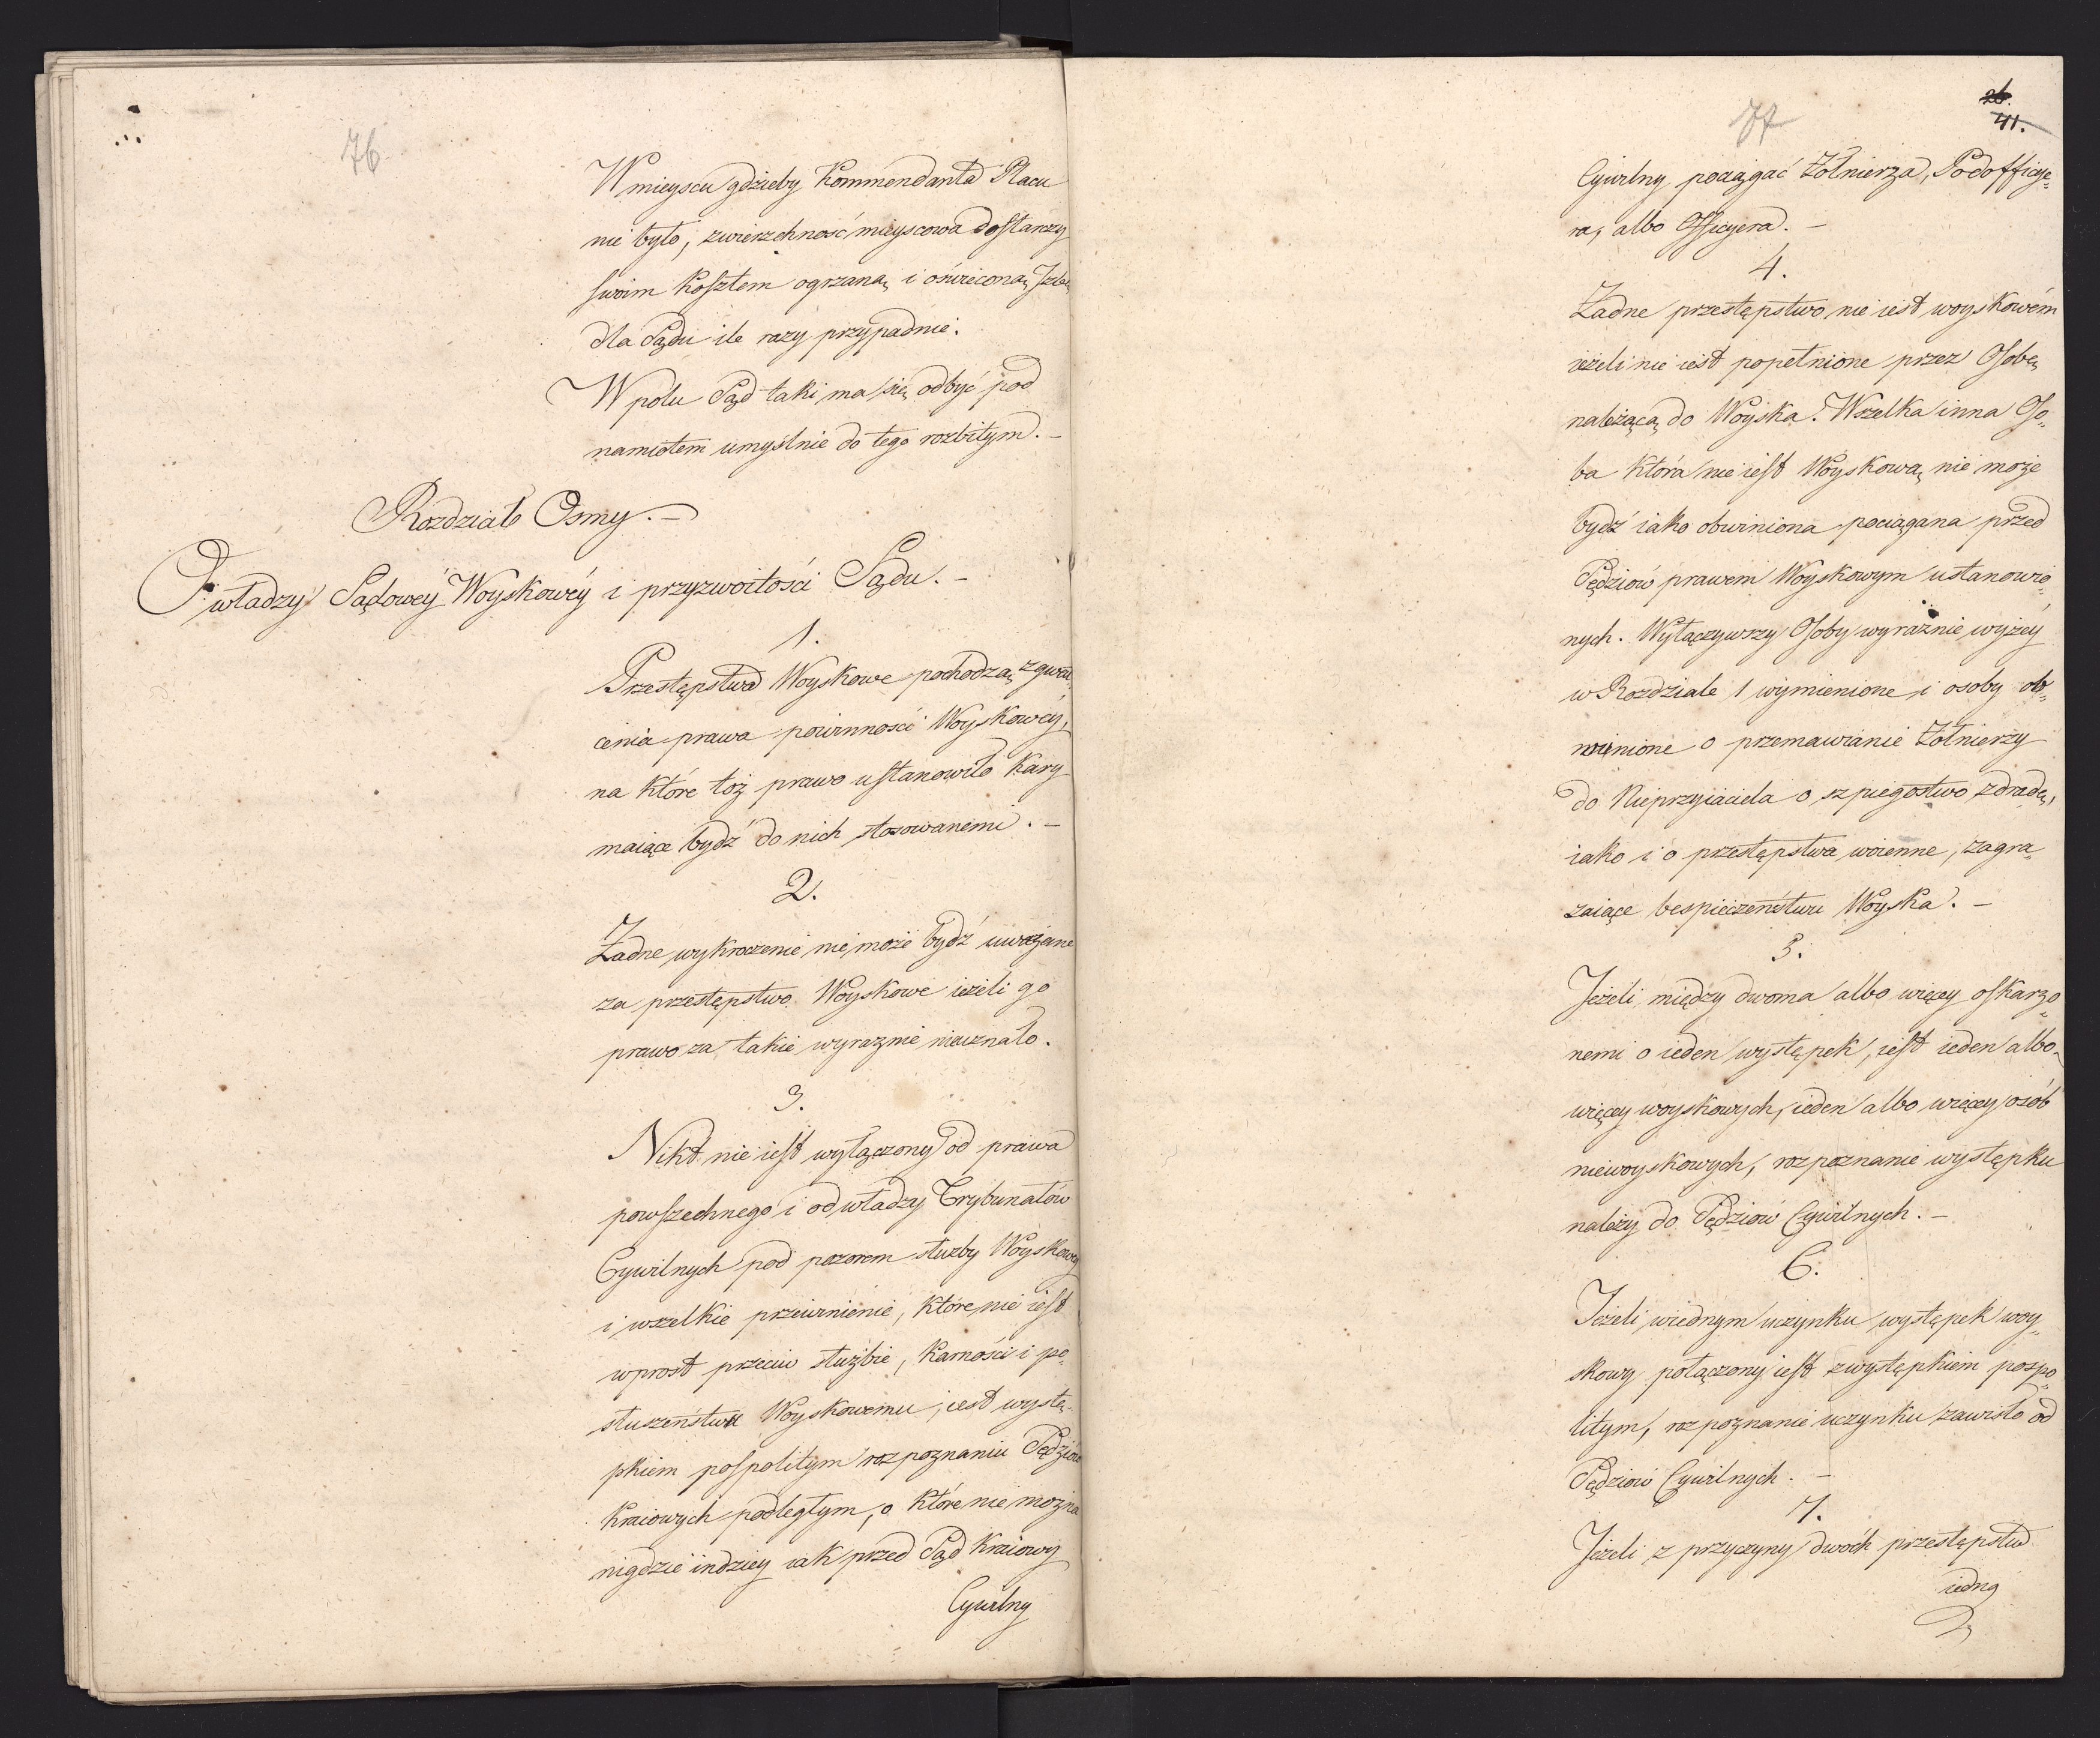 76
W mieyscu gdzieby Kommendanta Placu
nie było, zwierzchność mieyscowa dostarczy
swoim kosztem ogrzaną i oświeconą Jzbę
dla Sądu ile razy przypadnie.
W polu Sąd taki ma się odbyć pod
namiotem umyślnie do tego rozbitym. –
Rozdział Osmy. –
O władzy Sądowéy Woyskowéy i przyzwoitości Sądu. –
1.
Przestępstwa Woyskowe pochodzą z gwał„
cenia prawa powinności Woyskowéy,
na które toż prawo ustanowiło kary
maiące bydź do nich stosowanemi. –
2.
Żadne wykroczenie nie może bydź uważane
za przestępstwo Woyskowe ieżeli go
prawo za takie wyraznie nieuznało.
3.
Nikt nie iest wyłączony od prawa
powszechnego i od władzy Trybunałów
Cywilnych pod pozorem służby Woyskowéy
i wszelkie przewinienie, które nie iest
wprost przeciw służbie, karności i po„
słuszeństwu Woyskowemu, iest wystę„
pkiem pospolitym rozpoznaniu Sędziów
kraiowych podległym, o które nie można
nigdzie indziey iak przed Sąd kraiowy
Cywilny
77
26.
41.
Cywilny pociągać Żołnierza, Podofficye„
ra, albo Officyera. –
4.
Żadne przestępstwo nie iest woyskowém
ieżeli nie iest popełnione przez Osobę
należącą do Woyska. Wszelka inna Oso„
ba która nie iest Woyskową nie może
bydź iako obwiniona pociągana przed
Sędziów prawem Woyskowym ustanowio„
nych. Wyłączywszy Osoby wyraźnie wyżéy
w Rozdziale 1 wymienione i osoby ob„
winione o przemawianie Żołnierzy
do Nieprzyiaciela o szpiegostwo zdradę,
iako i o przestępstwa woienne, zagra„
żaiące bespieczeństwu Woyska. –
5.
Jeżeli między dwoma albo więcey oskarżo„
nemi o ieden występek, iest ieden albo
więcey woyskowych, ieden albo więcey osób
niewoyskowych, rozpoznanie występku
należy do Sędziów Cywilnych. –
6.
Jeżeli w iednym uczynku występek woy„
skowy połączony iest z występkiem pospo„
litym, rozpoznanie uczynku zawisło od
Sędziów Cywilnych. –
7.
Jeżeli z przyczyny dwóch przestępstw
iedna